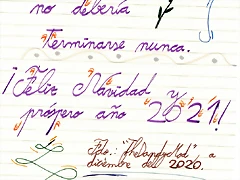 no debería
Terminarse nunca.
¡Feliz Navidad y
próspero año 2021!
Fdo.: "TheDandyMod", a
diciembre del 2020.